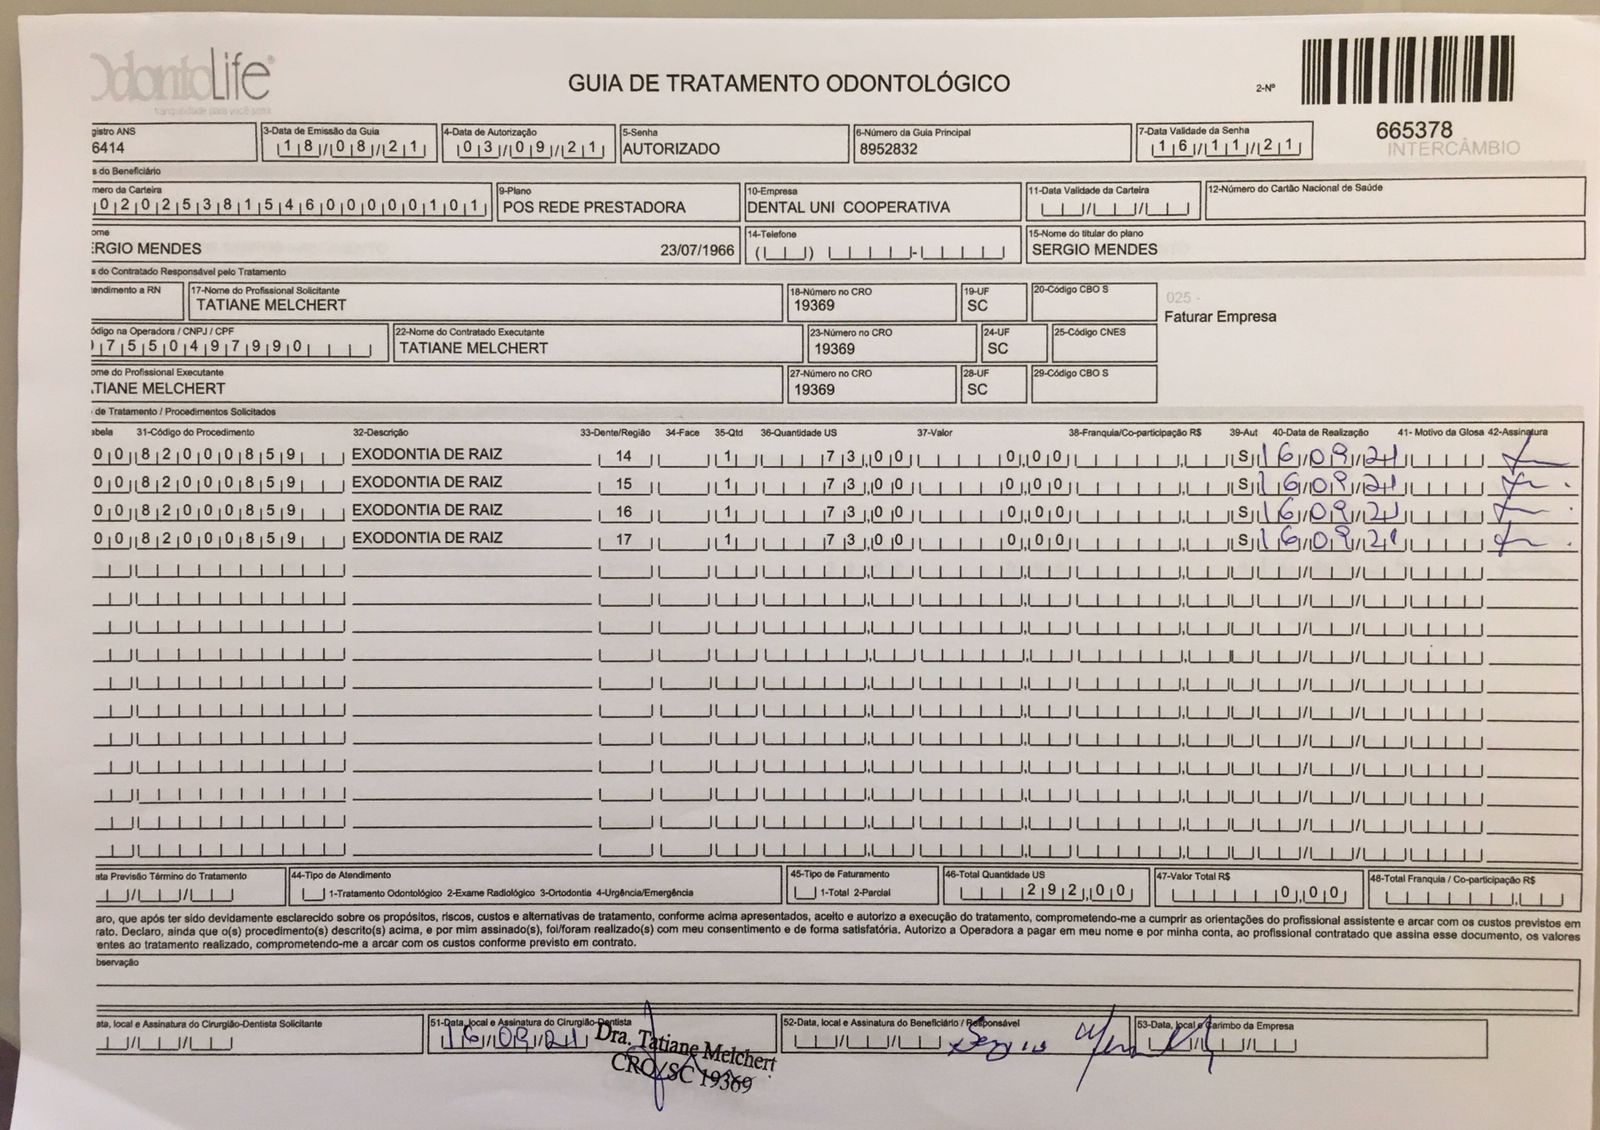 OdontoLife
tranquilidade para você sorrir
GUIA DE TRATAMENTO ODONTOLÓGICO
2-Nº
665378
INTERCÂMBIO
gistro ANS
6414
3-Data de Emissão da Guia
18/08/21
4-Data de Autorização
03/09/21
5-Senha
AUTORIZADO
6-Número da Guia Principal
8952832
7-Data Validade da Senha
16/11/21
s do Beneficiário
mero da Carteira
02025381546000000101
9-Plano
POS REDE PRESTADORA
10-Empresa
DENTAL UNI COOPERATIVA
11-Data Validade da Carteira
12-Número do Cartão Nacional de Saúde
ome
ERGIO MENDES 23/07/1966
14-Telefone
15-Nome do titular do plano
SERGIO MENDES
s do Contratado Responsável pelo Tratamento
endimento a RN
17-Nome do Profissional Solicitante
TATIANE MELCHERT
18-Número no CRO
19369
19-UF
SC
20-Código CBO S
025 -
Faturar Empresa
ódigo na Operadora / CNPJ / CPF
07550497990
22-Nome do Contratado Executante
TATIANE MELCHERT
23-Número no CRO
19369
24-UF
SC
25-Código CNES
ome do Profissional Executante
TATIANE MELCHERT
27-Número no CRO
19369
28-UF
SC
29-Código CBO S
de Tratamento / Procedimentos Solicitados
abela 31-Código do Procedimento 32-Descrição 33-Dente/Região 34-Face 35-Qtd 36-Quantidade US 37-Valor 38-Franquia/Co-participação R$ 39-Aut 40-Data de Realização 41- Motivo da Glosa 42-Assinatura
00 82000859 EXODONTIA DE RAIZ 14 1 73,00 0,00 S 16/09/21
00 82000859 EXODONTIA DE RAIZ 15 1 73,00 0,00 S 16/09/21
00 82000859 EXODONTIA DE RAIZ 16 1 73,00 0,00 S 16/09/21
00 82000859 EXODONTIA DE RAIZ 17 1 73,00 0,00 S 16/09/21
ata Previsão Término do Tratamento
44-Tipo de Atendimento
1-Tratamento Odontológico 2-Exame Radiológico 3-Ortodontia 4-Urgência/Emergência
45-Tipo de Faturamento
1-Total 2-Parcial
46-Total Quantidade US
292,00
47-Valor Total R$
0,00
48-Total Franquia / Co-participação R$
aro, que após ter sido devidamente esclarecido sobre os propósitos, riscos, custos e alternativas de tratamento, conforme acima apresentados, aceito e autorizo a execução do tratamento, comprometendo-me a cumprir as orientações do profissional assistente e arcar com os custos previstos em
rato. Declaro, ainda que o(s) procedimento(s) descrito(s) acima, e por mim assinado(s), foi/foram realizado(s) com meu consentimento e de forma satisfatória. Autorizo a Operadora a pagar em meu nome e por minha conta, ao profissional contratado que assina esse documento, os valores
entes ao tratamento realizado, comprometendo-me a arcar com os custos conforme previsto em contrato.
bservação
ata, local e Assinatura do Cirurgião-Dentista Solicitante
51-Data, local e Assinatura do Cirurgião-Dentista
16/09/21
Dra. Tatiane Melchert
CRO/SC 19369
52-Data, local e Assinatura do Beneficiário / Responsável
Sergio
53-Data, local e Carimbo da Empresa